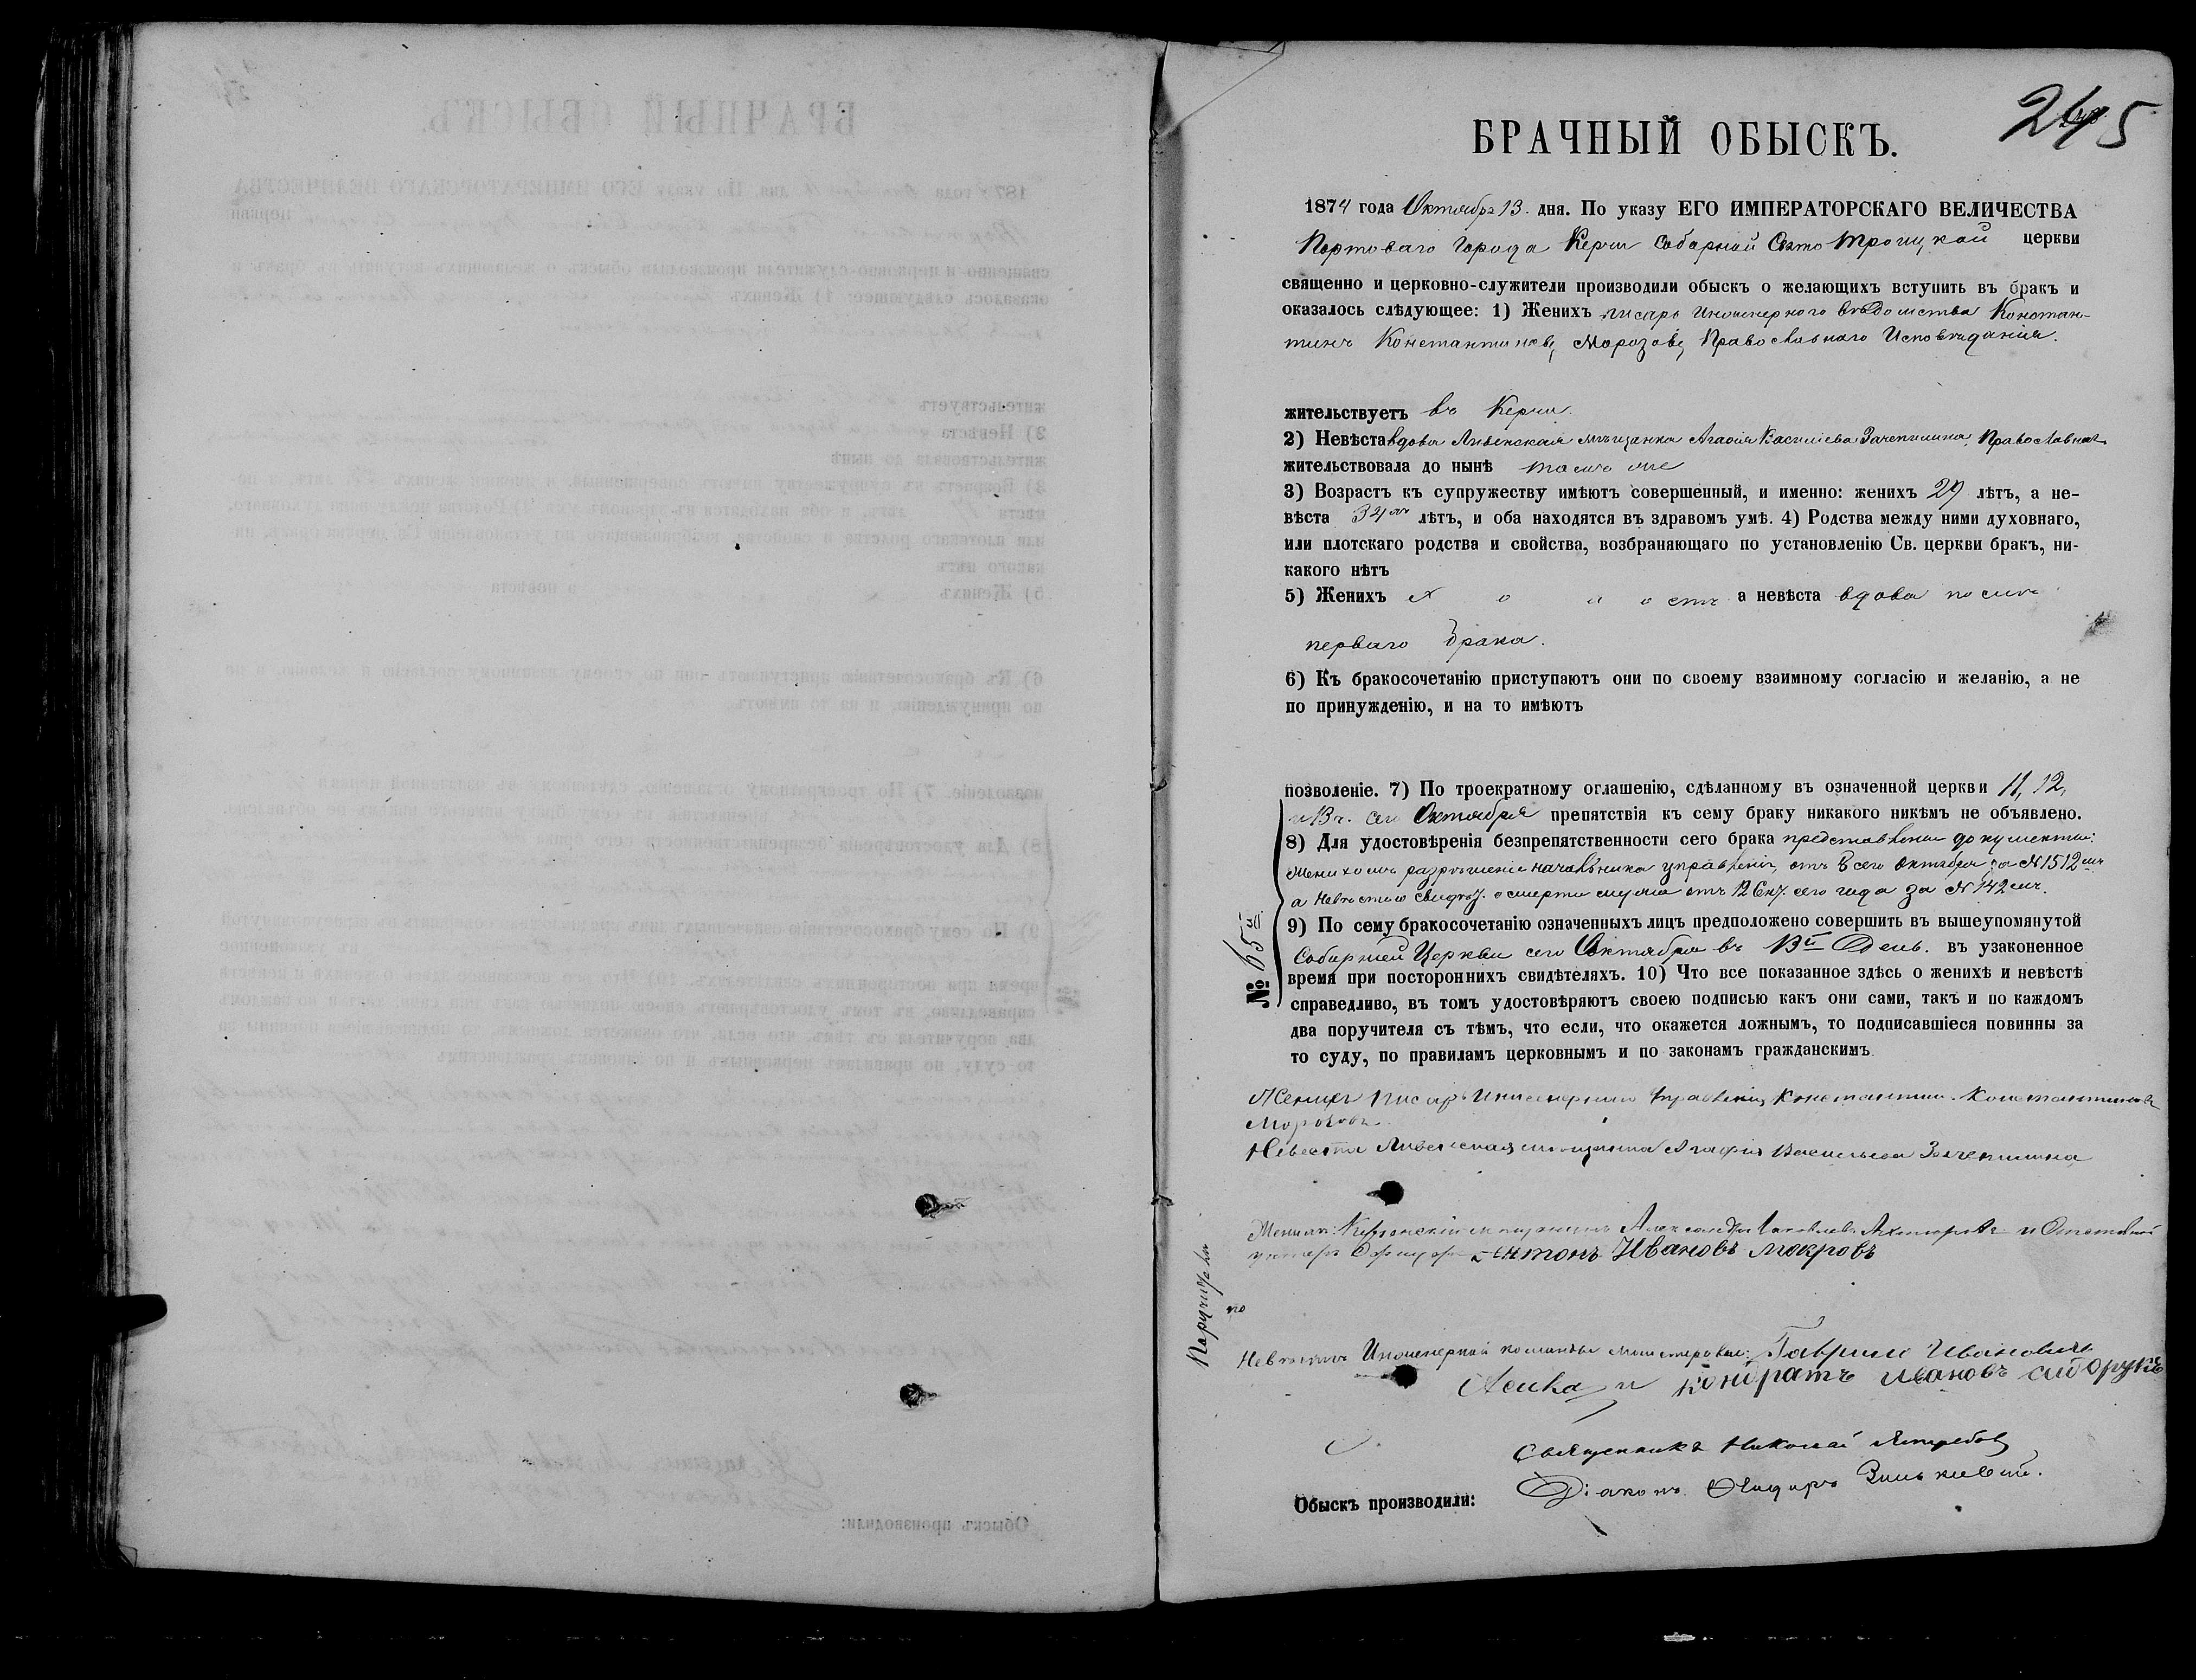 245
БРАЧНЫЙ ОБЫСКЪ.
1874 года Октября 13. дня. По указу ЕГО ИМПЕРАТОРСКАГО ВЕЛИЧЕСТВА
Портоваго Города Керчи Соборной Свято Троицкой церкви
священно и церковно-служители производили обыскъ о желающихъ вступить въ бракъ и
оказалось слѣдующее: 1) Женихъ писарь Инженернаго вѣдомства Констан-
тинъ Константиновъ Морозовъ Православнаго Исповѣданія.
жительствуетъ въ Керчи.
2) Невѣста вдова Ливенская мѣщанка Агафія Василіева Православная
жительствовала до нынѣ тамъ же
3) Возрастъ къ супружеству имѣютъ совершенный, и именно: женихъ 29 лѣтъ, а не-
вѣста 34 лѣтъ, и оба находятся въ здравомъ умѣ. 4) Родства между ними духовнаго,
или плотскаго родства и свойства, возбраняющаго по установленію Св. церкви бракъ, ни-
какого нѣтъ
5) Женихъ х о л о стъ а невѣста вдова послѣ
перваго брака.
6) Къ бракосочетанію приступаютъ они по своему взаимному согласію и желанію, а не
по принужденію, и на то имѣютъ
позволеніе. 7) По троекратному оглашенію, сдѣланному въ означенной церкви 11, 12,
и 13 ч. сего Октября препятствія къ сему браку никакого никѣмъ не объявлено.
8) Для удостовѣренія безпрепятственности сего брака представлены документы:
Женихомъ разрѣшеніе начальника управленія, отъ 8 сего Октября за № 1512
а Невѣстою свидѣт. о смерти мужа отъ 12 сего года за № 142
9) По сему бракосочетанію означенныхъ лицъ предположено совершить въ вышеупомянутой
Соборной Церкви сего Октября въ 13й День. въ узаконенное
время при постороннихъ свидѣтеляхъ. 10) Что все показанное здѣсь о женихѣ и невѣстѣ
справедливо, въ томъ удостовѣряютъ своею подписью какъ они сами, такъ и по каждомъ
два поручителя съ тѣмъ, что если, что окажется ложнымъ, то подписавшіеся повинны за
то суду, по правиламъ церковнымъ и по законамъ гражданскимъ.
№ 65
Женихъ писарь Инженернаго Управленія Константинъ Константиновъ
Морозовъ
Невеста Ливенская мещанка Агафия Васильева
Поручители по
Женихѣ: мещанинъ Александръ Яковлевъ и Отставной
унтеръ Офицеръ Антонъ Ивановъ Мокровъ
Невѣстѣ Инженерной команды мастеровые: Гаврило Ивановичъ
и кондратъ ивановъ
Священникъ Николай Ястребовъ
Обыскъ производили: Діаконъ Зинькевич.